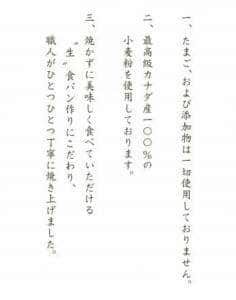 一、たまご、および添加物は一切使用しておりません。
二、最高級カナダ産一〇〇％の
小麦粉を使用しております。
三、焼かずに美味しく食べていただける
〝生〟食パン作りにこだわり、
職人がひとつひとつ丁寧に焼き上げました。